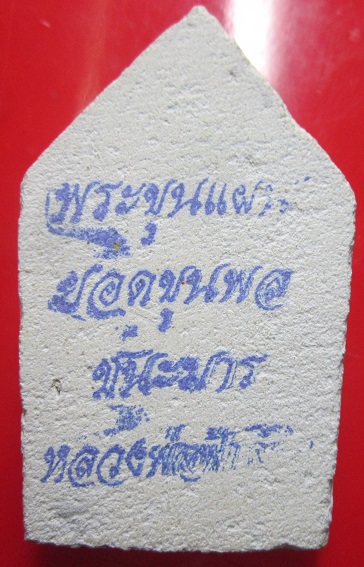 พระขุนแผน
ยอดขุนพล
ชนะมาร
หลวงพ่อ